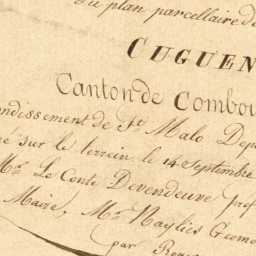 du plan parcellaire de
CUGUEN
Canton de Combou
ndissement de St. Malo Dep
é sur le terrein le 14 Septembre
Mr. Le Comte Devendeuvre préf
Maire, Mr. Naylies Geom
par